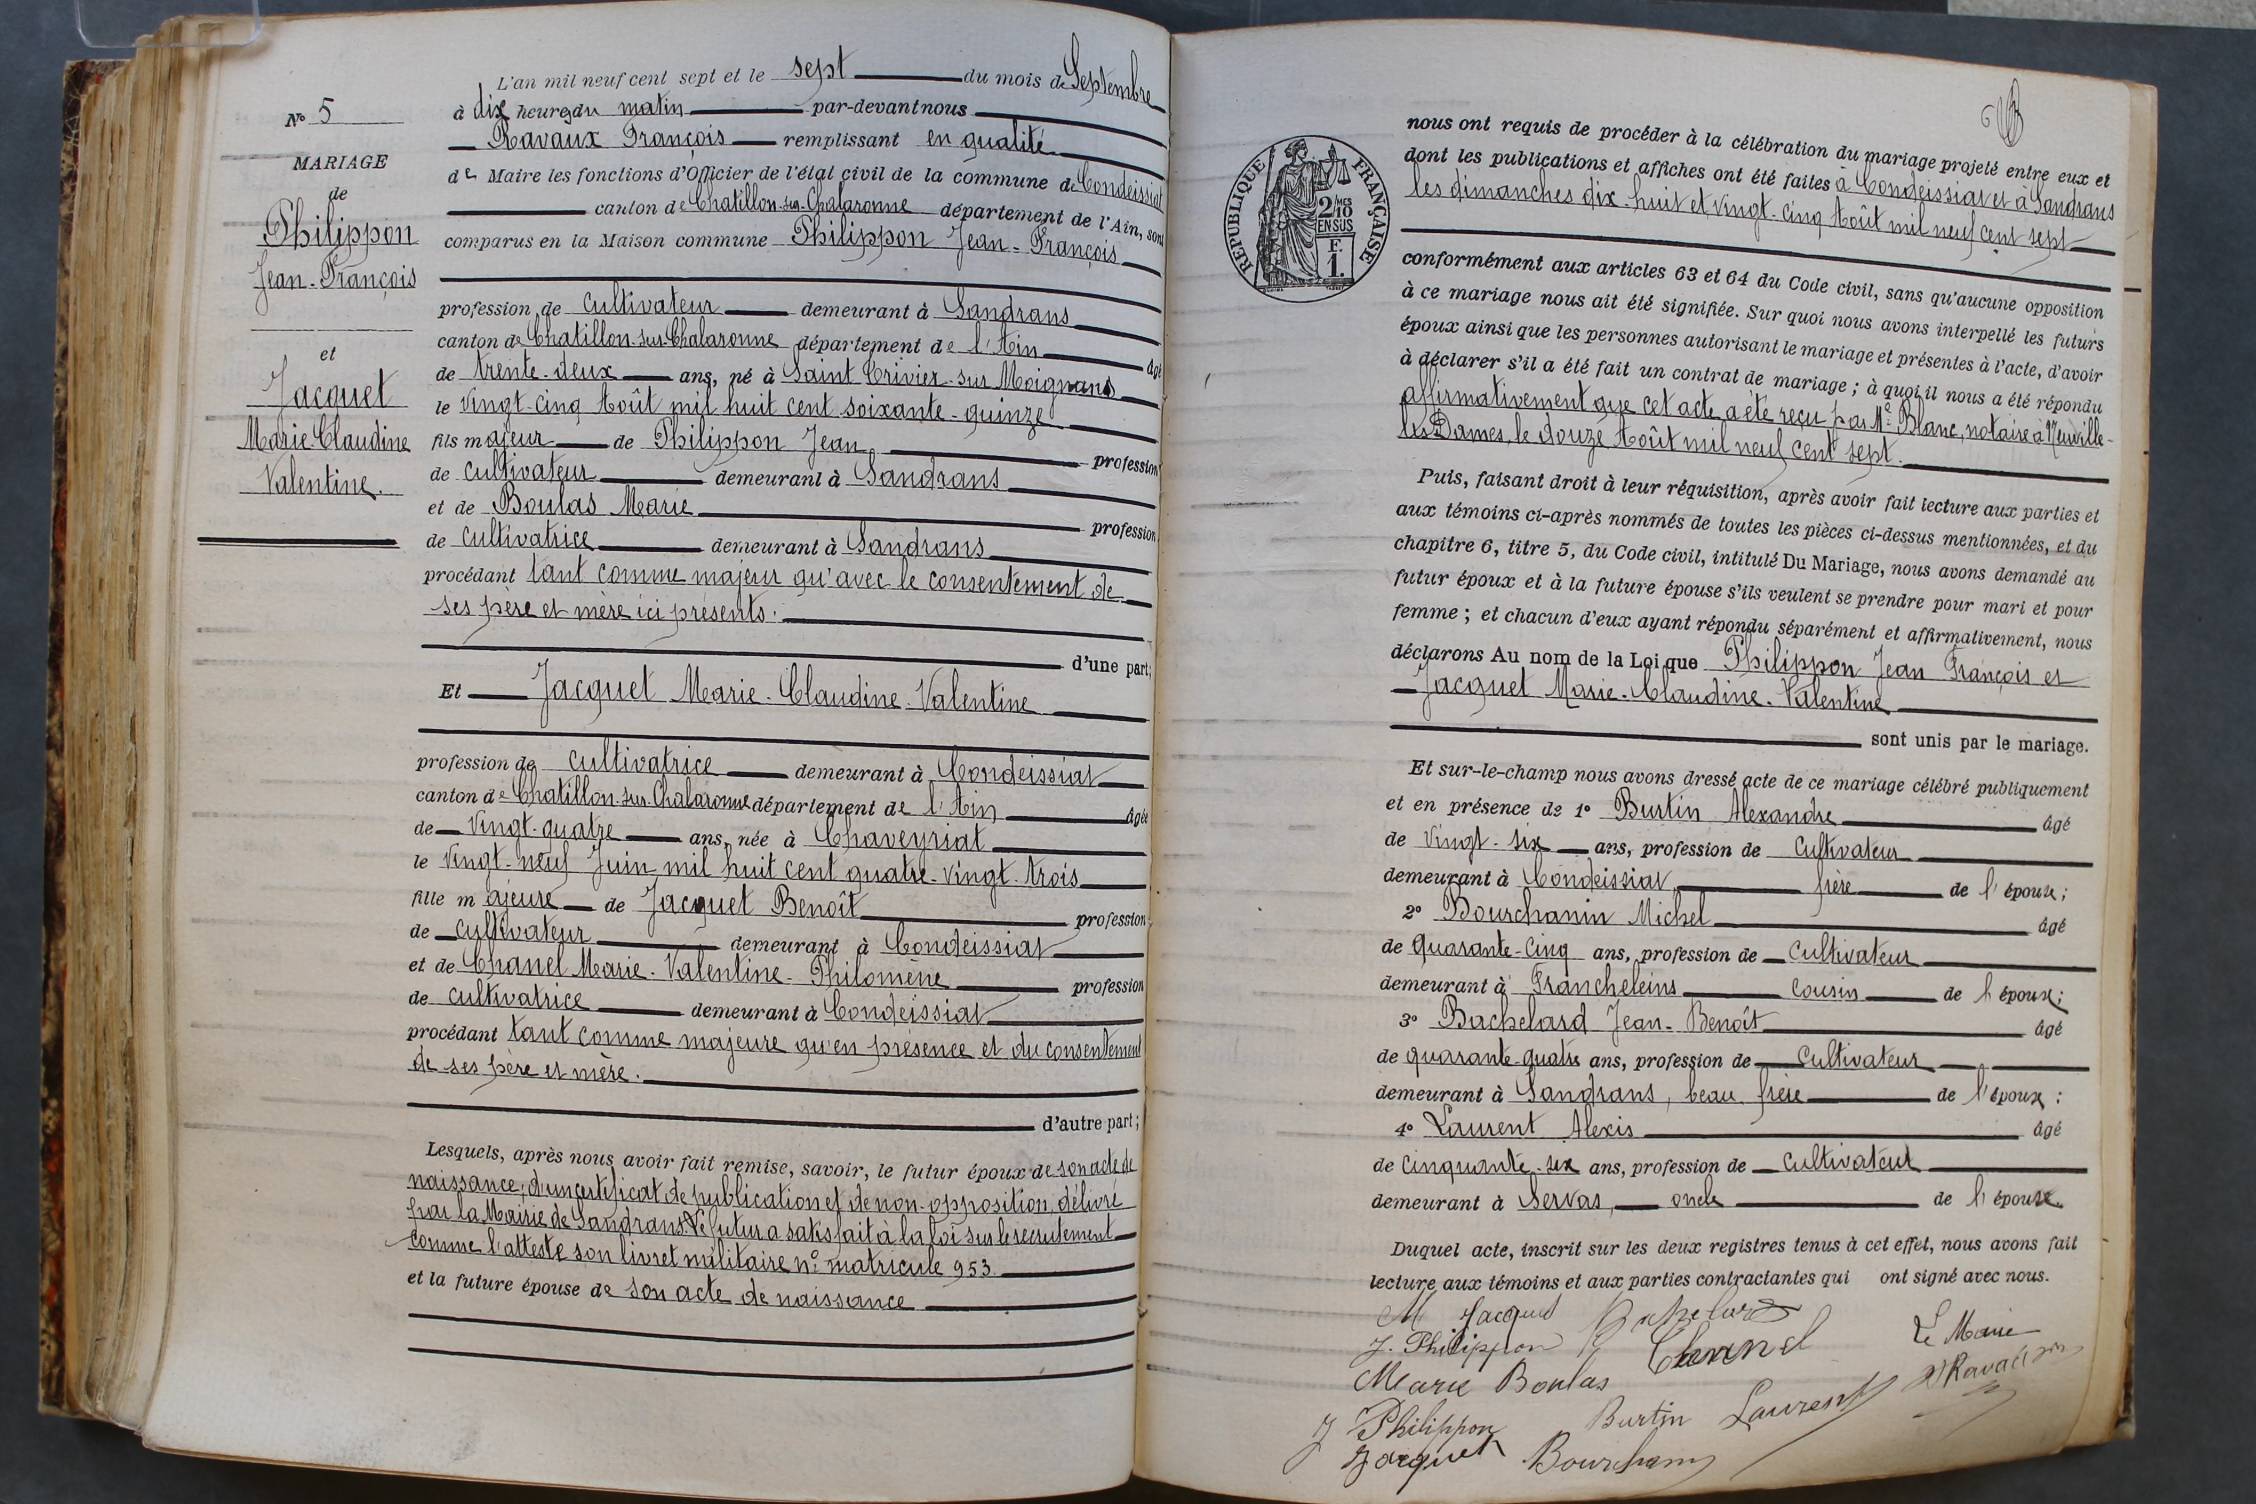 L'an mil neuf cent sept et le sept du mois de Septembre
à dix heures du matin par-devant nous
Ravaux François remplissant en qualité
de Maire les fonctions d'Officier de l'état civil de la commune de Condeissiat
canton de Chatillon-sur-Chalaronne département de l'Ain, sont
comparus en la Maison commune Philippon Jean-François
profession de cultivateur demeurant à Sandrans
canton de Chatillon-sur-Chalaronne département de l'Ain âgé
de trente-deux ans, né à Saint Trivier-sur Moignans
le vingt-cinq Août mil huit cent soixante-quinze
fils majeur de Philippon Jean profession
de cultivateur demeurant à Sandrans
et de Boulas Marie profession
de cultivatrice demeurant à Sandrans
procédant tant comme majeur qu'avec le consentement de
ses père et mère ici présents.
d'une part;
Et Jacquet Marie-Claudine-Valentine
profession de cultivatrice demeurant à Condeissiat
canton de Chatillon-sur-Chalaronne département de l'Ain âgée
de vingt-quatre ans, née à Chaveyriat
le vingt-neuf Juin mil huit cent quatre-vingt-trois
fille majeure de Jacquet Benoît profession
de cultivateur demeurant à Condeissiat
et de Chanel Marie-Valentine-Philomène profession
de cultivatrice demeurant à Condeissiat
procédant tant comme majeure qu'en présence et du consentement
de ses père et mère.
d'autre part;
Lesquels, après nous avoir fait remise, savoir, le futur époux de son acte de
naissance, d'un certificat de publication et de non-opposition délivré
par la Mairie de Sandrans. Le futur a satisfait à la loi sur le recrutement
comme l'atteste son livret militaire n° matricule 953
et la future épouse de son acte de naissance
N° 5
MARIAGE
de
Philippon
Jean-François
et
Jacquet
Marie-Claudine
Valentine.
RÉPUBLIQUE FRANÇAISE
2/10 MES
EN SUS
F.
1.
nous ont requis de procéder à la célébration du mariage projeté entre eux et
dont les publications et affiches ont été faites à Condeissiat et à Sandrans
les dimanches dix-huit et vingt-cinq Août mil neuf cent sept
conformément aux articles 63 et 64 du Code civil, sans qu'aucune opposition
à ce mariage nous ait été signifiée. Sur quoi nous avons interpellé les futurs
époux ainsi que les personnes autorisant le mariage et présentes à l'acte, d'avoir
à déclarer s'il a été fait un contrat de mariage; à quoi il nous a été répondu
affirmativement que cet acte a été reçu par Me Blanc, notaire à Neuville-
les-Dames, le douze Août mil neuf cent sept.
Puis, faisant droit à leur réquisition, après avoir fait lecture aux parties et
aux témoins ci-après nommés de toutes les pièces ci-dessus mentionnées, et du
chapitre 6, titre 5, du Code civil, intitulé Du Mariage, nous avons demandé au
futur époux et à la future épouse s'ils veulent se prendre pour mari et pour
femme; et chacun d'eux ayant répondu séparément et affirmativement, nous
déclarons Au nom de la Loi que Philippon Jean François et
Jacquet Marie-Claudine-Valentine
sont unis par le mariage.
Et sur-le-champ nous avons dressé acte de ce mariage célébré publiquement
et en présence de 1° Burtin Alexandre âgé
de vingt-six ans, profession de cultivateur
demeurant à Condeissiat, frère de l'épouse;
2° Bourchanin Michel âgé
de quarante-cinq ans, profession de cultivateur
demeurant à Francheleins cousin de l'époux;
3° Bachelard Jean-Benoît âgé
de quarante-quatre ans, profession de cultivateur
demeurant à Sandrans, beau frère de l'époux:
4° Laurent Alexis âgé
de cinquante-six ans, profession de cultivateur
demeurant à Servas, oncle de l'épouse.
Duquel acte, inscrit sur les deux registres tenus à cet effet, nous avons fait
lecture aux témoins et aux parties contractantes qui ont signé avec nous.
M Jacquet Bachelard
J. Philippon Chanel Le Maire
Marie Boulas Ravaux
J Philippon Burtin Laurent
Jacquet Bourchanin